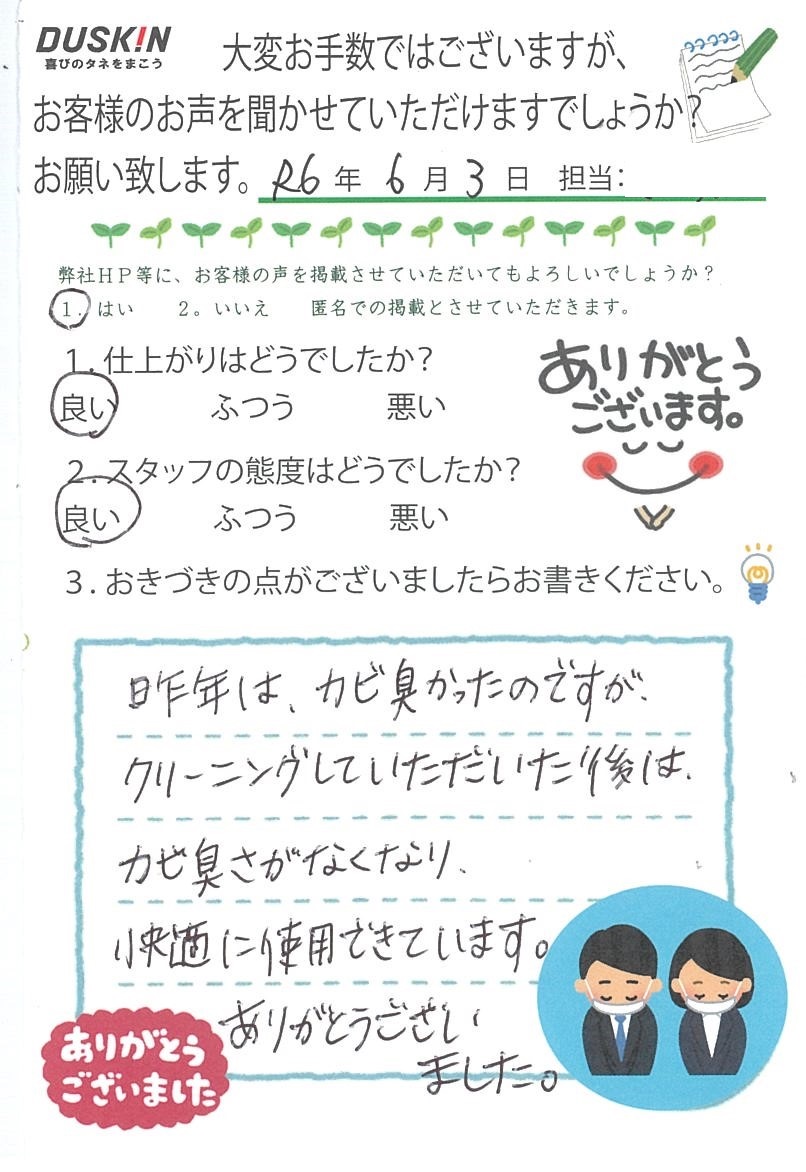 DUSK!N
喜びのタネをまこう
大変お手数ではございますが、
お客様のお声を聞かせていただけますでしょうか?
お願い致します。 R6 年 6 月 3 日 担当:
弊社HP等に、お客様の声を掲載させていただいてもよろしいでしょうか?
1. はい 2。いいえ 匿名での掲載とさせていただきます。
1. 仕上がりはどうでしたか?
良い ふつう 悪い
ありがとう
ございます。
2. スタッフの態度はどうでしたか?
良い ふつう 悪い
3. おきづきの点がございましたらお書きください。
昨年は、カビ臭かったのですが、
クリーニングしていただいた後は、
カビ臭さがなくなり、
快適に使用できています。
ありがとうござい
ました。
ありがとう
ございました